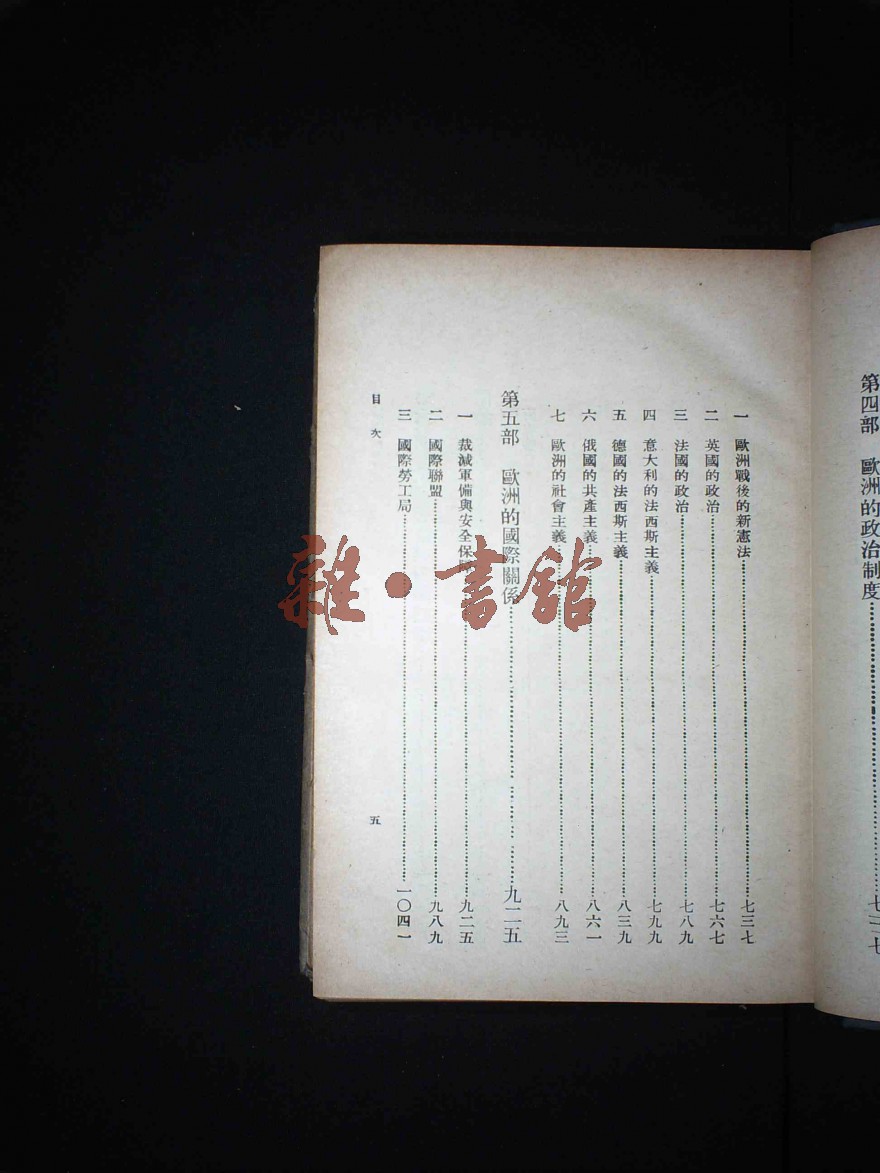 第四部 歐洲的政治制度……七三七
一 歐洲戰後的新憲法……七三七
二 英國的政治……七六七
三 法國的政治……七八九
四 意大利的法西斯主義……七九九
五 德國的法西斯主義……八三九
六 俄國的共產主義……八六一
七 歐洲的社會主義……八九三
第五部 歐洲的國際關係……九二五
一 裁減軍備與安全保……九二五
二 國際聯盟……九八九
三 國際勞工局……一〇四一
目次 五
雜·書館